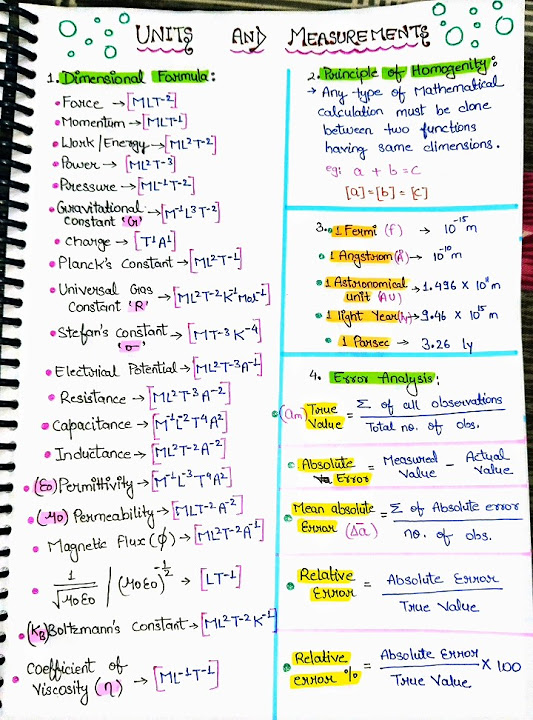 UNITS AND MEASUREMENTS
1. Dimensional Formula:
• Force → [MLT⁻²]
• Momentum → [MLT⁻¹]
• Work/Energy → [ML²T⁻²]
• Power → [ML²T⁻³]
• Pressure → [ML⁻¹T⁻²]
• Gravitational
Constant 'G' → [M⁻¹L³T⁻²]
• charge → [T¹A¹]
• Planck's Constant → [ML²T⁻¹]
• Universal Gas
Constant 'R' → [ML²T⁻²K⁻¹Mol⁻¹]
• Stefan's constant
'σ' → [MT⁻³K⁻⁴]
• Electrical Potential → [ML²T⁻³A⁻¹]
• Resistance → [ML²T⁻³A⁻²]
• Capacitance → [M⁻¹L⁻²T⁴A²]
• Inductance → [ML²T⁻²A⁻²]
• (ε0) Permittivity → [M⁻¹L⁻³T⁴A²]
• (μ0) Permeability → [MLT⁻²A⁻²]
• Magnetic Flux (ϕ) → [ML²T⁻²A⁻¹]
• 1/√μ0ε0 / (μ0ε0)^-1/2 → [LT⁻¹]
• (KB) Boltzmann's Constant → [ML²T⁻²K⁻¹]
• Coefficient of
Viscosity (η) → [ML⁻¹T⁻¹]
2. Principle of Homogenity:
→ Any type of Mathematical
calculation must be done
between two functions
having same dimensions.
eg: a + b = c
[a] = [b] = [c]
3. • 1 Fermi (f) → 10⁻¹⁵ m
• 1 Angstrom (Å) → 10⁻¹⁰ m
• 1 Astronomical
unit (AU) → 1.496 × 10¹¹ m
• 1 light Year (ly) → 9.46 × 10¹⁵ m
• 1 Parsec → 3.26 ly
4. Error Analysis:
• (am) True Value = Σ of all observations / Total no. of obs.
• Absolute Error = Measured Value − Actual Value
• Mean absolute Error (Δā) = Σ of Absolute error / no. of obs.
• Relative Error = Absolute Error / True Value
• Relative error % = Absolute Error / True Value × 100